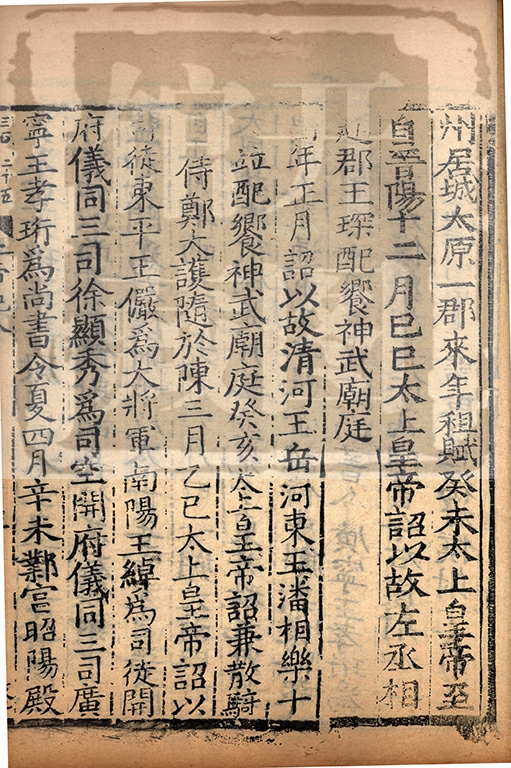 州居城太原一郡來年租賦癸未太上皇帝至
自晉陽十二月巳巳太上皇帝詔以故左丞相
趙郡王琛配饗神武廟庭
年正月詔以故清河王岳河東王潘相樂十
竝配饗神武廟庭癸亥太上皇帝詔兼散騎
侍鄭大護隨於陳三月乙巳太上皇帝詔以
徒東平王儼爲大將軍南陽王綽爲司徒開
府儀同三司徐顯秀爲司空開府儀同三司廣
寧王孝珩爲尚書令夏四月辛未鄴宮昭陽殿